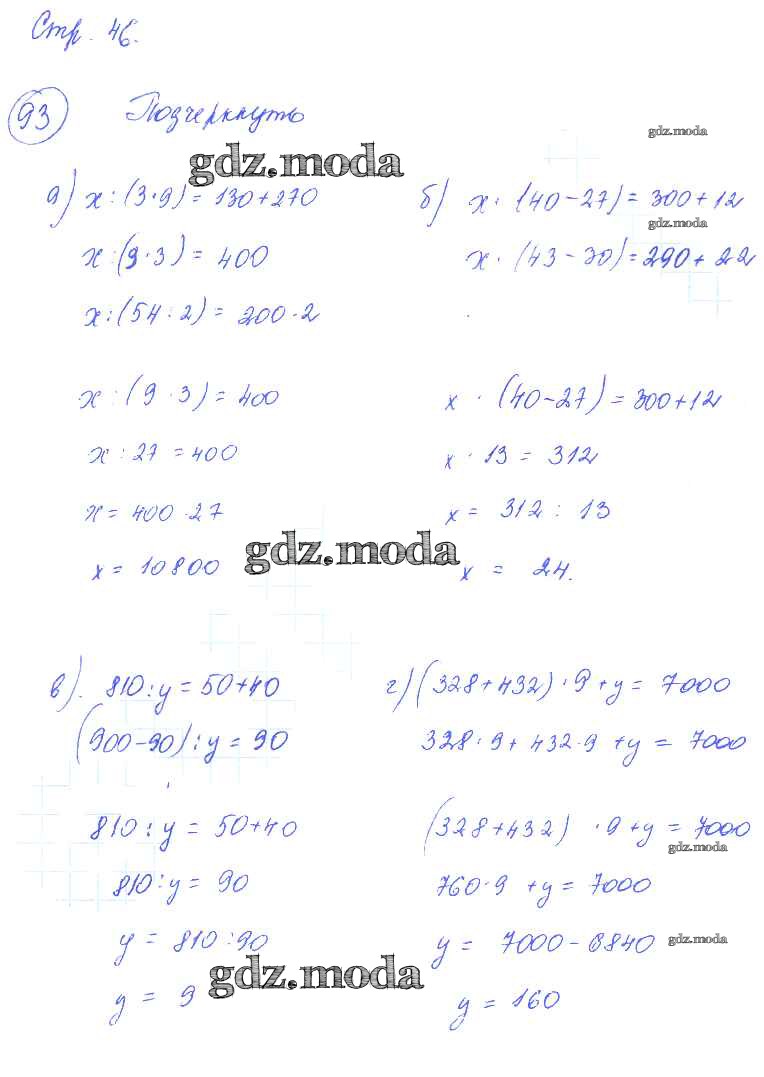 Стр. 46.
93 Подчеркнуть
gdz.moda
gdz.moda
а) x : (3·9) = 130+270
x : (9·3) = 400
x : (54:2) = 200·2
б) x · (40-27) = 300+12
gdz.moda
x · (43-30) = 290+22
x : (9·3) = 400
x : 27 = 400
x = 400·27
x = 10800
x · (40-27) = 300+12
x · 13 = 312
x = 312 : 13
x = 24.
gdz.moda
в). 810 : y = 50+40
(900-90) : y = 90
810 : y = 50+40
810 : y = 90
y = 810 : 90
y = 9
gdz.moda
г) (328+432)·9+y = 7000
328·9+432·9+y = 7000
(328+432)·9+y = 7000
gdz.moda
760·9+y = 7000
y = 7000-6840
gdz.moda
y = 160